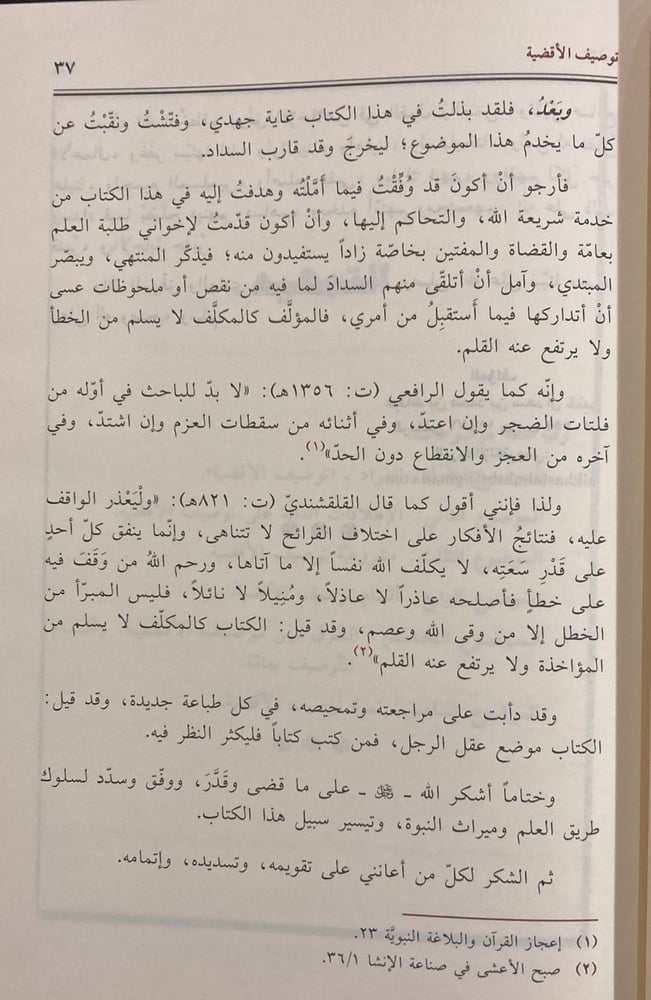 توصيف الأقضية
٣٧
وبَعْدُ، فلقد بذلتُ في هذا الكتاب غاية جهدي، وفتّشْتُ ونقّبْتُ عن
كلّ ما يخدمُ هذا الموضوع؛ ليخرجَ وقد قارب السداد.
فأرجو أنْ أكونَ قد وُفِّقْتُ فيما أمَّلْتُه وهدفتُ إليه في هذا الكتاب من
خدمة شريعة الله، والتحاكم إليها، وأنْ أكون قدّمتُ لإخواني طلبة العلم
بعامّة والقضاة والمفتين بخاصّة زاداً يستفيدون منه؛ فيذكّر المنتهي، ويبصّر
المبتدي، وآمل أنْ أتلقّى منهم السدادَ لما فيه من نقص أو ملحوظات عسى
أنْ أتداركها فيما أَستقبِلُ من أمري، فالمؤلَّف كالمكلَّف لا يسلم من الخطأ
ولا يرتفع عنه القلم.
وإنّه كما يقول الرافعي (ت: ١٣٥٦هـ): «لا بدّ للباحث في أوّله من
فلتات الضجر وإن اعتدّ، وفي أثنائه من سقطات العزم وإن اشتدّ، وفي
آخره من العجز والانقطاع دون الحدّ»(١).
ولذا فإنني أقول كما قال القلقشنديّ (ت: ٨٢١هـ): «ولْيَعْذر الواقف
عليه، فنتائجُ الأفكار على اختلاف القرائح لا تتناهى، وإنّما ينفق كلّ أحدٍ
على قَدْرِ سَعَتِه، لا يكلّف الله نفساً إلا ما آتاها، ورحم اللهُ من وَقَفَ فيه
على خطأٍ فأصلحه عاذراً لا عاذلاً، ومُنِيلاً لا نائلاً، فليس المبرّأ من
الخطل إلا من وقى الله وعصم، وقد قيل: الكتاب كالمكلّف لا يسلم من
المؤاخذة ولا يرتفع عنه القلم»(٢).
وقد دأبت على مراجعته وتمحيصه، في كل طباعة جديدة، وقد قيل:
الكتاب موضع عقل الرجل، فمن كتب كتاباً فليكثر النظر فيه.
وختاماً أشكر الله - ﷻ - على ما قضى وقَدَّرَ، ووفّق وسدّد لسلوك
طريق العلم وميراث النبوة، وتيسير سبيل هذا الكتاب.
ثم الشكر لكلّ من أعانني على تقويمه، وتسديده، وإتمامه.
(١) إعجاز القرآن والبلاغة النبويَّة ٢٣.
(٢) صبح الأعشى في صناعة الإنشا ٣٦/١.